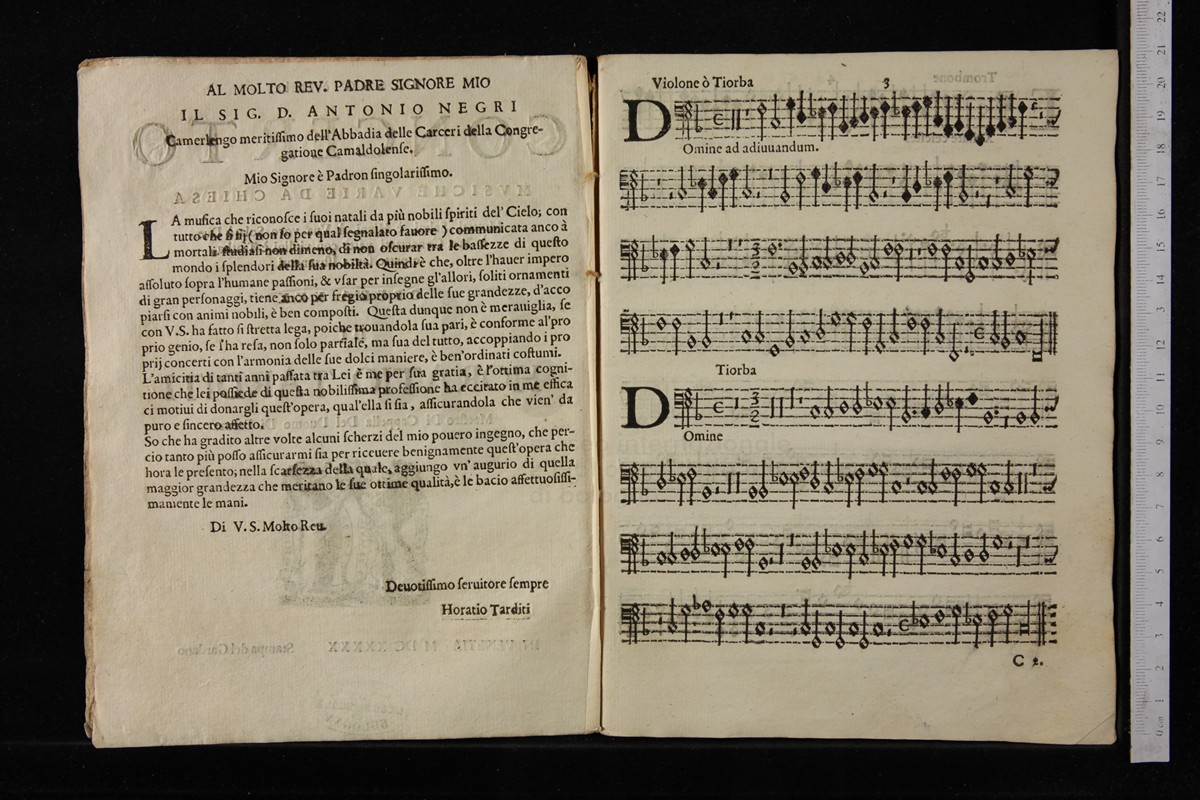 AL MOLTO REV. PADRE SIGNORE MIO
IL SIG. D. ANTONIO NEGRI
Camerlengo meritiſſimo dell'Abbadia delle Carceri della Congre-
gatione Camaldolenſe.
Mio Signore è Padron ſingolariſſimo.
LA muſica che riconoſce i ſuoi natali da più nobili ſpiriti del' Cielo; con
tutto che ſi ſij (non ſo per qual ſegnalato fauore) communicata anco à
mortali ſtudiaſi non dimeno, di non oſcurar tra le baſſezze di queſto
mondo i ſplendori della ſua nobiltà. Quindi è che, oltre l'hauer impero
aſſoluto ſopra l'humane paſſioni, & vſar per inſegne gl'allori, ſoliti ornamenti
di gran perſonaggi, tiene anco per fregio proprio delle ſue grandezze, d'acco
piarſi con animi nobili, è ben compoſti. Queſta dunque non è merauiglia, ſe
con V.S. ha fatto ſi ſtretta lega, poiche trouandola ſua pari, è conforme al'pro
prio genio, ſe l'ha reſa, non ſolo partiale, ma ſua del tutto, accoppiando i pro
prij concerti con l'armonia delle ſue dolci maniere, è ben'ordinati coſtumi.
L'amicitia di tanti anni paſſata tra Lei è me per ſua gratia, è l'ottima cogni-
tione che lei poſſiede di queſta nobiliſſima profeſſione ha eccitato in me effica
ci motiui di donargli queſt'opera, qual'ella ſi ſia, aſſicurandola che vien' da
puro e ſincero affetto.
So che ha gradito altre volte alcuni ſcherzi del mio pouero ingegno, che per-
cio tanto più poſſo aſſicurarmi ſia per riceuere benignamente queſt'opera che
hora le preſento; nella ſcarſezza della quale, aggiungo vn' augurio di quella
maggior grandezza che meritano le ſue ottime qualità, è le bacio affettuoſiſſi-
mamente le mani.
Di V.S. Molto Reu.
Deuotiſſimo ſeruitore ſempre
Horatio Tarditi
Violone ò Tiorba 3
Domine ad adiuuandum.
Tiorba
Domine
C 2.